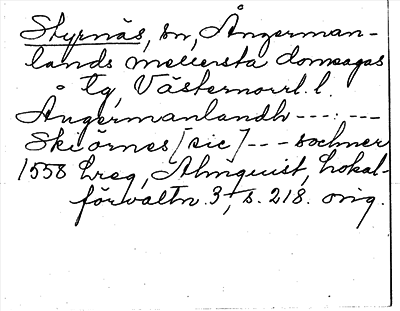 Styrnäs, sn, Ångerman-
lands mellersta domsagas
tg, Västernorrl. l.
Ångermanlandh ---:---
Skiörnes [sic] --- sochner
1558 Lreg, Almquist, Lokal-
förvaltn. 3, s. 218. orig.